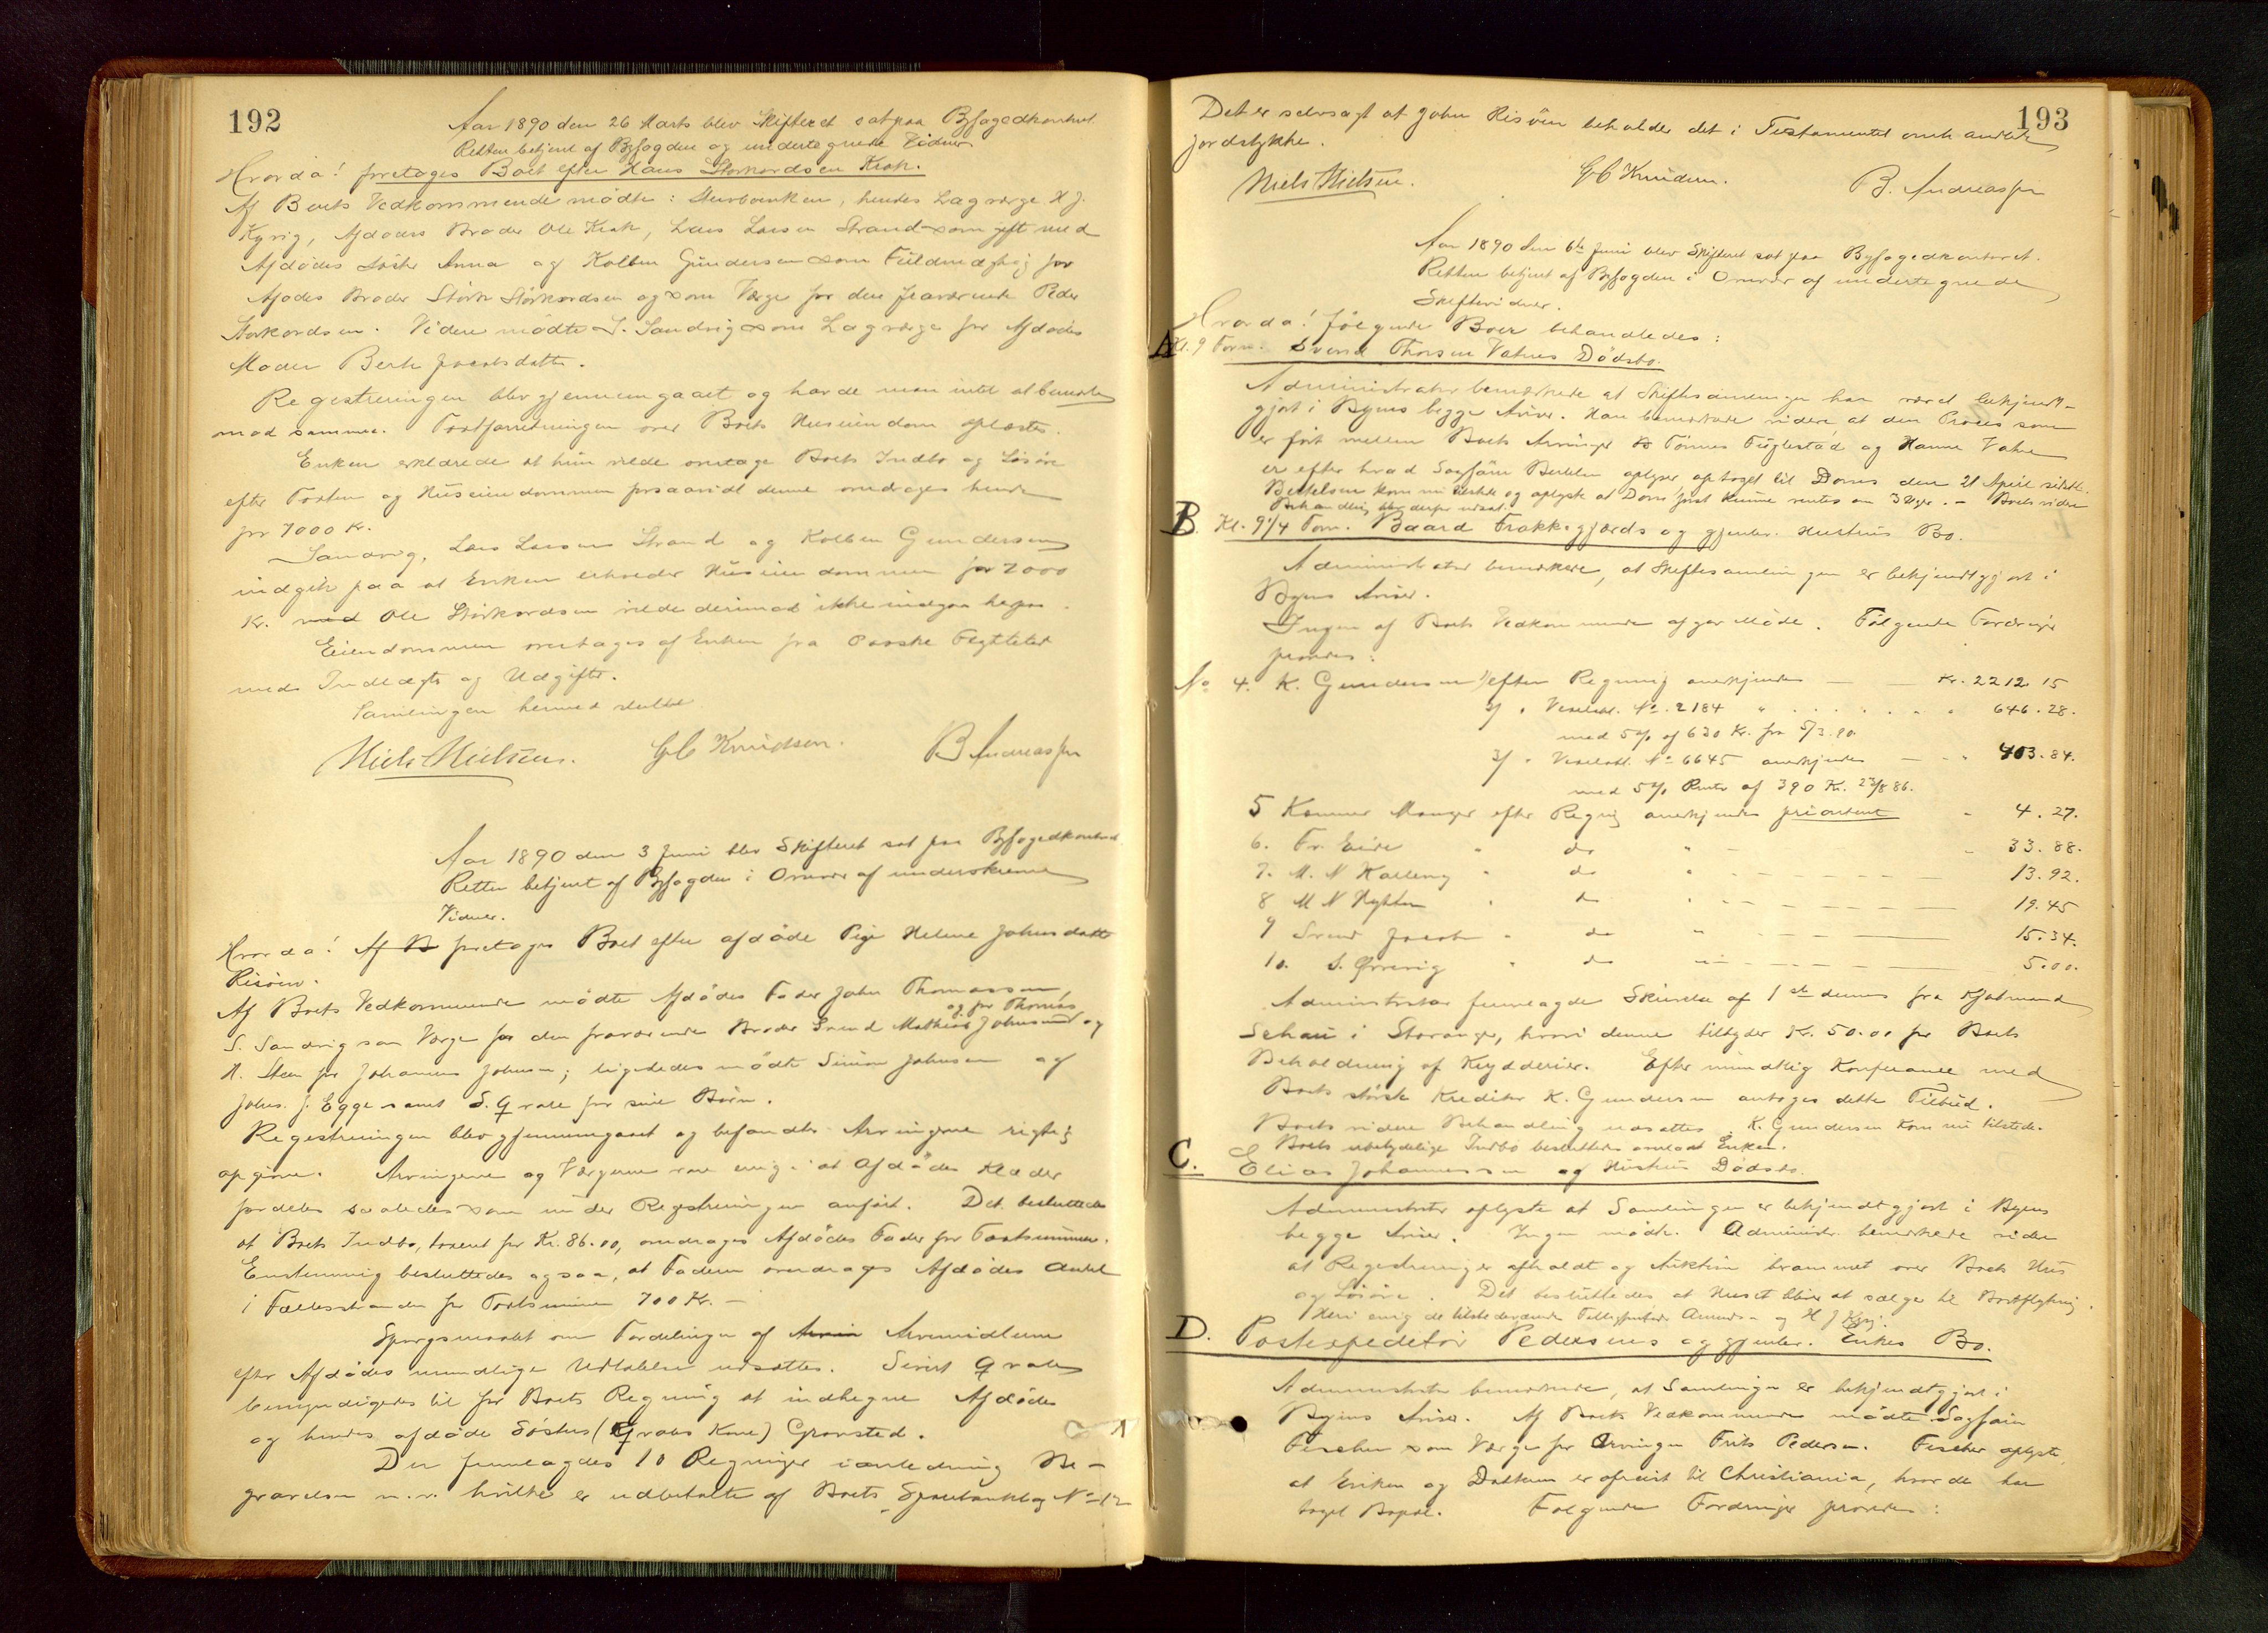 192
Aar 1890 den 26 Marts blev Skifteret sat paa Byfogedkontoret.
Retten betjent af Byfogden og undertegnede Vidner.
Hvorda! foretoges Boet efter Hans Storkordsen Krak.
Af Boets Vedkommende mødte: Sterboenken, hendes Lagværge H J.
Kyvig, Afdødes Broder Ole Krak, Lars Larsen Strand som gift med
Afdødes Søster Anna og Kolben Gundersen som Fuldmægtig for
Afdødes Broder Stork Storkordsen og som Værge for den fraværende Peder
Storkordsen. Videre mødte S. Sandvig som Lagværge for Afdødes
Moder Berte Jacobsdatter.
Registreringen blev gjennemgaaet og havde man intet at bemærke
mod samme. Taxtforretningen over Boets Huseiendom oplæstes.
Enken erklærede at hun vilde overtage Boets Indbo og Løsøre
efter Taxten og Huseiendommen forsaavidt denne overdroges hende
for 7000 Kr.
Sandvig, Lars Larsen Strand og Kolben Gundersen
indgik paa at Enken erholder Huseiendommen for 7000
Kr. med Ole Storkordsen vilde derimod ikke indgaa herpaa.
Eiendommen overtages af Enken fra Paaske Flyttetid
med Indtægts og Udgifts.
Samlingen hermed sluttet.
Niels Nielsen. G C Knudsen. B Andreassen
Aar 1890 den 3 Juni blev Skifteret sat paa Byfogedkontoret
Retten betjent af Byfogden i Overvær af underskrevne
Vidner.
Hvorda! Af B foretoges Boet efter afdøde Pige Helene Johnsdatter
Risøen.
Af Boets Vedkommende mødte Afdødes Fader John Thomassen,
og for Thomas
S. Sandvig som Værge for den fraværende Broder Svend Mathias Johnsen og
H. Steen for Johannes Johnsen; ligeledes mødte Simon Johnsen og
Johs. J. Egge samt S. Qvale for sine Børn.
Registreringen blev gjennemgaaet og befandtes Arvingerne rigtig
opgivne. Arvingerne og Værgerne vare enig i at Afdødes Klæder
fordeles saaledes som under Registreringen anført. Det besluttedes
at Boets Indbo, taxeret for Kr. 86.00, overdrages Afdødes Fader for Taxtsummen.
Enstemmig besluttedes ogsaa, at Faderen overdrages Afdødes Andel
i Fællesstranden for Taxtsummen 700 Kr. —
Spørgsmaalet om Fordelingen af Arvemidlerne
efter Afdødes mundlige Udtalelse udsattes. Sivert Qvale
bemyndigedes til for Boets Regning at indhegne Afdødes
og hendes afdøde Søsters (Qvales Kone) Gravsted.
Der fremlagdes 10 Regninger i anledning Be-
gravelsen m.v. hvilke er udbetalte af Boets Sparebankbog No 12
193
Det er selvsagt at John Risøen beholder det i Testamentet omhandlede
jordstykke.
Niels Nielsen. G C Knudsen. B. Andreassen
Aar 1890 den 6te Juni blev Skifteret sat paa Byfogedkontoret.
Retten betjent af Byfogden i Overvær af undertegnede
Skiftevidner.
Hvorda! følgende Boer behandledes:
A Kl. 9 Form. Svend Thorsen Vatnes Dødsbo.
Administrator bemærkede at Skiftesamlingen har været bekjendt-
gjort i Byens begge Aviser. Han bemærkede videre at den Proces som
er ført mellem Boets Arvinger & Tønnes Fuglestad og Hanne Vatne
er efter hvad Sagfører Bertelsen oplyser optaget til Doms den 21 April sidstl.
Bertelsen kom nu tilstede og oplyste at Dom først kunne ventes om 3 Uger. — Boets videre
Behandling blev derfor udsat.
B. Kl. 9 1/4 Form. Baard Frakkegjerds og gjenlev. Hustrus Bo.
Administrator bemærkede, at Skiftesamlingen er bekjendtgjort i
Byens Aviser.
Ingen af Boets Vedkommende afgav Møde. Følgende Fordringer
prøvedes:
No 4. K. Gundersen 1/ efter Regning anerkjendes — — Kr. 2212. 15
2/ " Vexelobl. No. 2184 " . . . . . . . " 646. 28.
med 5% af 630 Kr. fra 5/3. 90.
3/ " Vexelobl. No 6645 anerkjendes — — " 403. 84.
med 5% Rente af 390 Kr. 23/8 86.
5 Kæmner Monger efter Regng anerkjendes prioriteret " 4. 27.
6. Fr. Eide " do " — " 33. 88.
7. M. N Kalleny " do " — — — — 13. 92.
8 M N Nyhten " do " — — — — 19. 45
9 Svend Jacobs " do " — — — — 15. 34.
10. S. Ørrevig " do " — — — — 5. 00.
Administrator fremlagde Skrivelse af 1ste dennes fra Kjøbmand
Schau i Stavanger, hvori denne tilbyder Kr. 50.00 for Boets
Beholdning af Krydderier. Efter mundtlig Konferance med
Boets største Kreditor K. Gundersen antoges dette Tilbud.
Boets videre Behandling udsattes. K. Gundersen kom nu tilstede.
Boets ubetydelige Indbo besluttedes overladt Enken.
C. Elias Johannessen og Hustrus Dødsbo.
Administrator oplyste at Samlingen er bekjendtgjort i Byens
begge Aviser. Ingen mødte. Administr. bemærkede videre
at Registrering er afholdt og Auktion berammet over Boets Hus
og Løsøre. Det besluttedes at Huset bliver at sælge til Bortflytning.
Heri enig de tilstedeværende Amunds- og H J Kyvig.
D. Postexpeditør Pedersens og gjenlev. Enkes Bo.
Administrator bemærkede, at Samlingen er bekjendtgjort i
Byens Aviser. Af Boets Vedkommende mødte Sagfører
Fischer som Værge for Arvingen Frits Pedersen. Fischer oplyste,
at Enken og Datteren er afreist til Christiania, hvor de har
taget Bopæl. Følgende Fordringer prøvedes: